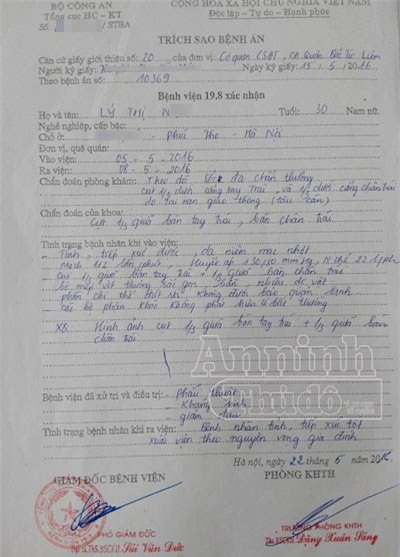 BỘ CÔNG AN
Tổng cục HC - KT
Số: /STBA
CỘNG HÒA XÃ HỘI CHỦ NGHĨA VIỆT NAM
Độc lập - Tự do - Hạnh phúc
TRÍCH SAO BỆNH ÁN
Căn cứ giấy giới thiệu số: 20 của đơn vị: Cơ quan CSĐT, CA Quận Bắc Từ Liêm
Người ký giấy: Ngày ký giấy: 15/5/2016
Theo bệnh án số: 10369
Bệnh viện 19.8 xác nhận
Họ và tên: LÝ THỊ N Tuổi: 30 Nam nữ
Nghề nghiệp, cấp bậc:
Chỗ ở: - Phúc Thọ - Hà Nội
Đơn vị, quê quán:
Vào viện: 05 - 5 - 2016
Ra viện: 08 - 5 - 2016
Chẩn đoán phòng khám: Theo dõi Sốc đa chấn thương
cụt 1/3 dưới cẳng tay Trái, và 1/3 dưới cẳng chân trái
do tai nạn giao thông (tàu cán)
Chẩn đoán của khoa:
Cụt 1/3 quá bàn tay trái, bàn chân trái
Tình trạng bệnh nhân khi vào viện:
- Tỉnh, tiếp xúc được, da niêm mạc nhợt
Mạch lần/phút, Huyết áp 130/80 mmHg, N thở 22 l/ph
cụt 1/3 quá bàn tay trái + 1/3 quá bàn chân trái
bờ mép vết thương nham nhở, bẩn, nhiều dị vật
phần chi thể đứt rời không được bảo quản lạnh
các bộ phận khác không phát hiện gì bất thường
XQ: Hình ảnh cụt 1/3 quá bàn tay trái + 1/3 quá bàn
chân trái
Anninh
Thủ đô
Bệnh viện đã xử trí và điều trị: Phẫu thuật
Kháng sinh
giảm đau
Tình trạng bệnh nhân khi ra viện: Bệnh nhân tỉnh, tiếp xúc tốt
xuất viện theo nguyện vọng gia đình
Hà nội, ngày 22 tháng 6 năm 2016
GIÁM ĐỐC BỆNH VIỆN
PHÒNG KHTH
PHÓ GIÁM ĐỐC
TRƯỞNG PHÒNG KHTH
Bùi Văn Đức
Đặng Xuân Sáng